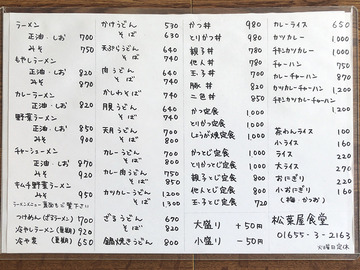 ラーメン
正油・しお 700
みそ 750
もやしラーメン
正油・しお 820
みそ 870
カレーラーメン
正油・しお 820
野菜ラーメン
正油・しお 850
みそ 900
チャーシューメン
正油・しお 870
みそ 920
キムチ野菜ラーメン
みそ 950
つけめん(ざるラーメン) 700
冷やしラーメン(夏期) 920
冷や麦(夏期) 650
かけうどん 530
そば 630
天ぷらうどん 640
そば 740
肉うどん 640
そば 740
かしわそば 740
月見うどん 640
そば 740
天丼うどん 700
そば 800
カレーうどん 700
そば 800
カレー肉うどん 750
そば 850
カツカレーうどん 1,200
そば 1,300
ざるうどん 670
そば 670
鍋焼きうどん 800
かつ丼 980
とりかつ丼 980
親子丼 780
他人丼 780
玉子丼 700
豚丼 820
二色丼 850
かつ定食 1000
とりかつ定食 1000
しょうが焼定食 1000
かつとじ定食 1000
とりかつとじ定食 1000
親子とじ定食 800
他人とじ定食 800
玉子とじ定食 720
大盛り +50円
小盛り -50円
カレーライス 650
カツカレー 1,000
チキンカツカレー 1,000
チャーハン 750
カレーチャーハン 870
カツカレーチャーハン 1,200
チキンカツカレーチャーハン 1,200
茶わんライス 100
小ライス 160
ライス 220
大ライス 270
おにぎり 220
小おにぎり 160
(梅・かつお)
松葉屋食堂
01655-3-2163
火曜日定休